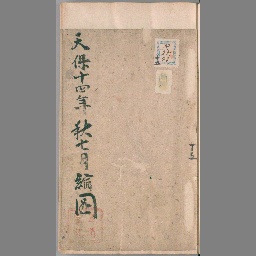 天保十四年秋七月縮図